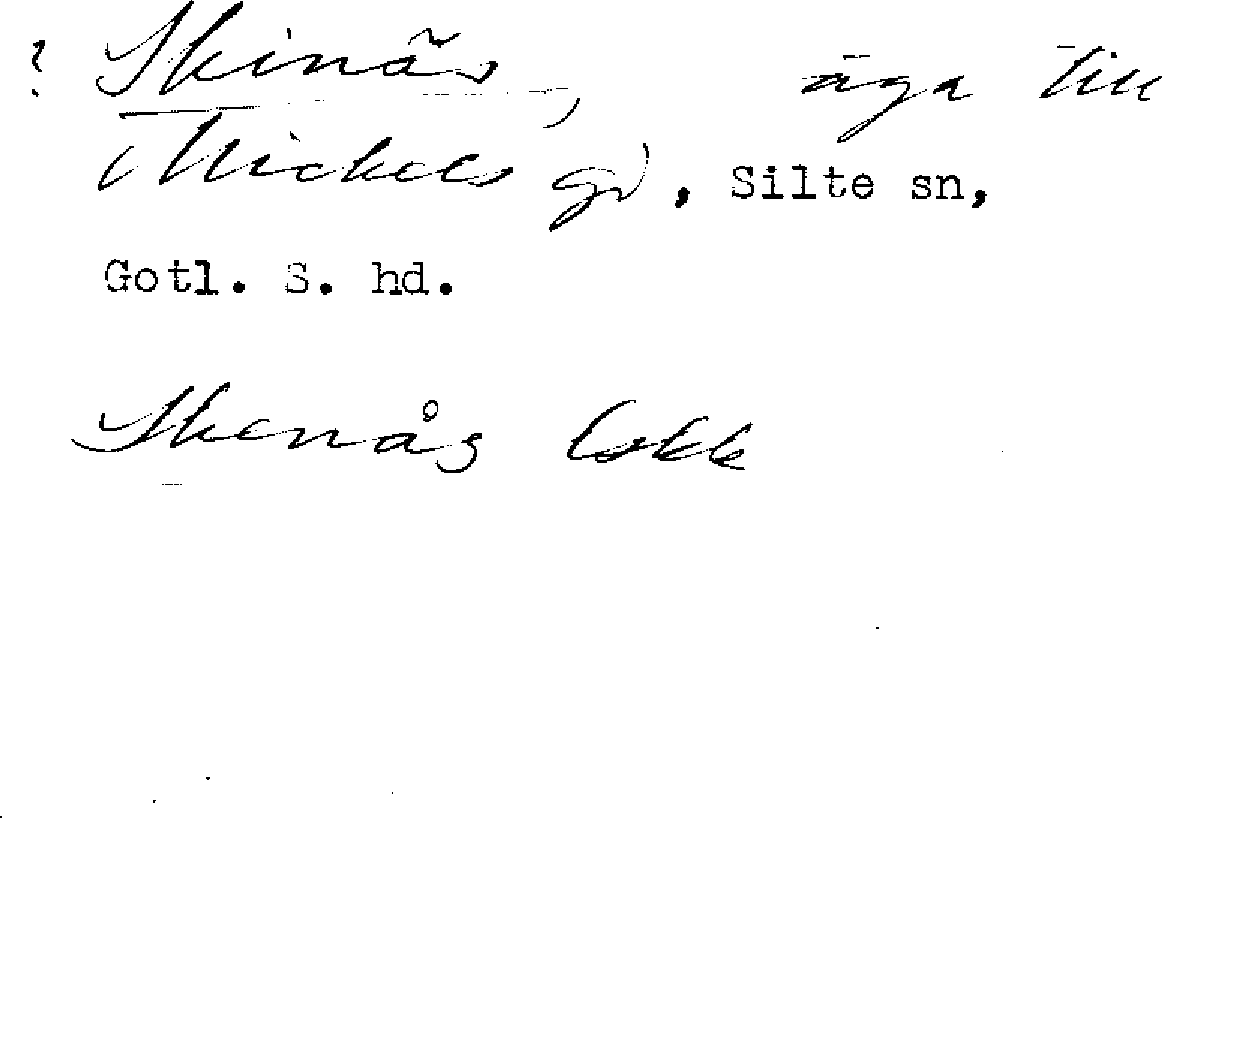 ? Skinäs, äga till
Mickels gd, Silte sn,
Gotl. S. hd.
Skenås